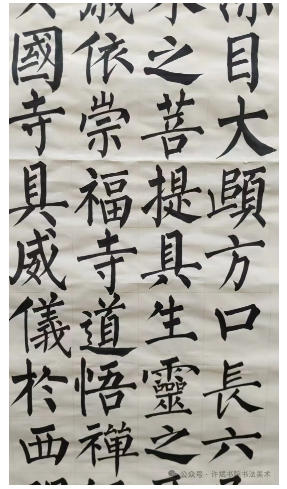 目大頤方口長六
之菩提具生靈之
歲依崇福寺道悟禪
國寺具威儀於西
公众号·许斌书院书法美术